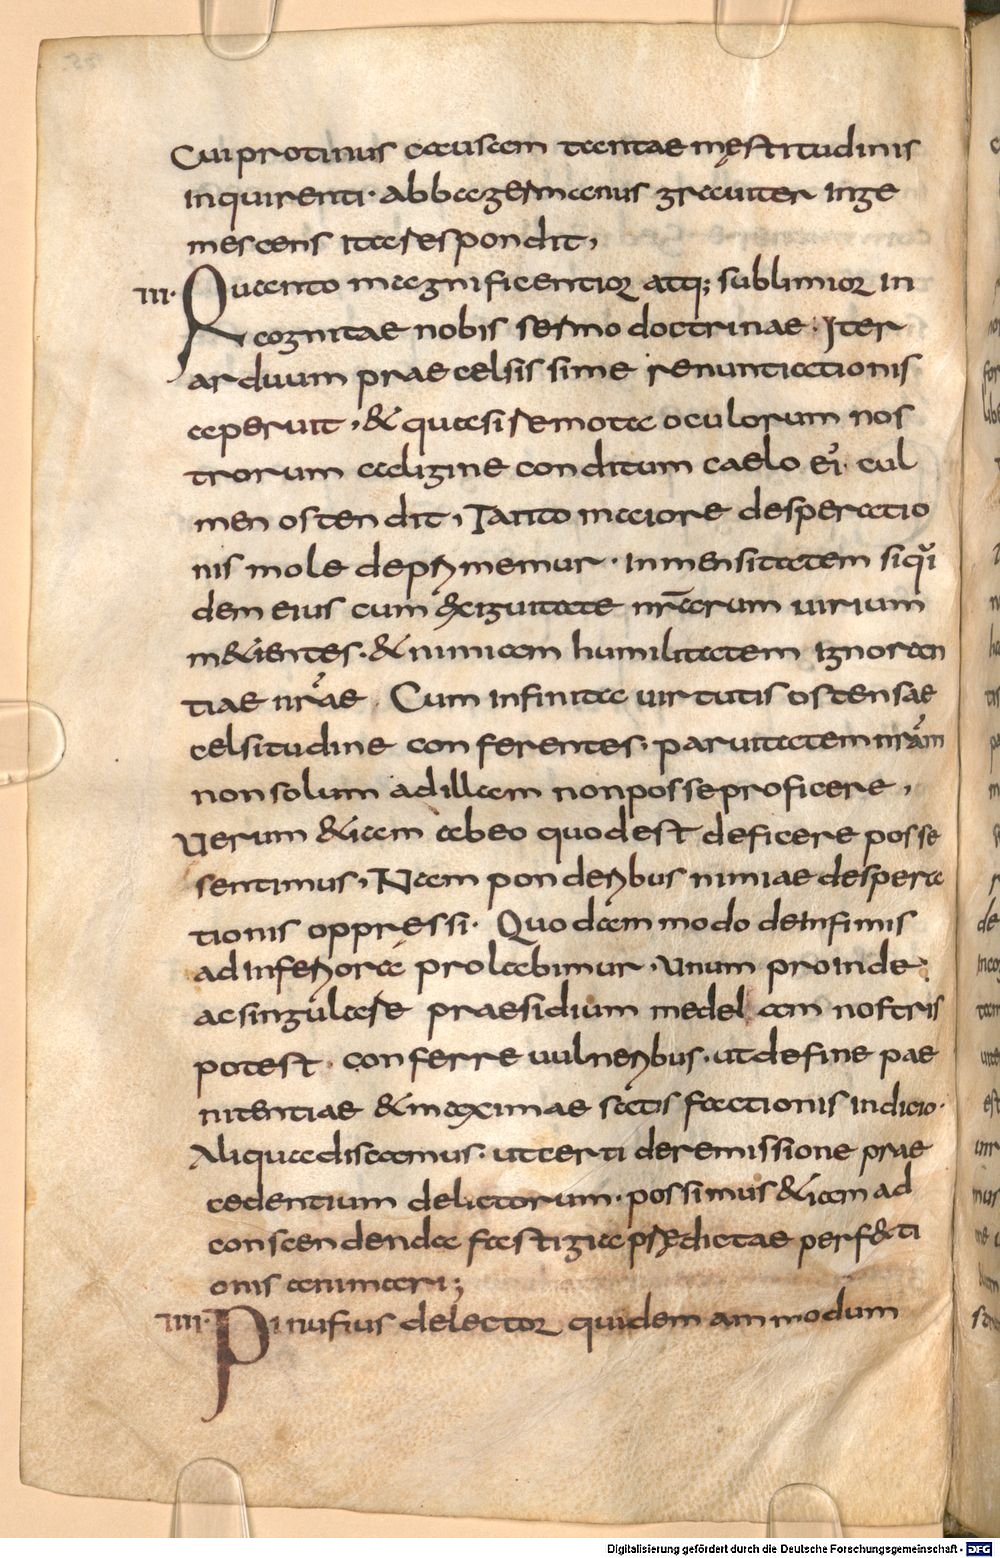 Cui protinus causam tantae męstitudinis
inquirenti· abba germanus grauiter inge
mescens ita respondit,
III· Quanto magnificentior atq; sublimior in
cognitae nobis sermo doctrinae· Iter
arduum praecelsissime renuntiationis
aperuit, & quasi remota oculorum nos
trorum caligine conditum caelo ei᾽ cul
men ostendit, Tanto maiore desperatio
nis mole deprimemur· inmensitatem siqui
dem eius cum exiguitate nr̄arum uirium
m&ientes· & nimiam humilitatem ignoran
tiae nr̄ae· Cum infinita uirtutis ostensae
celsitudine conferentes· paruitatem nr̄am
non solum ad illam non posse proficere,
Verum &iam ab eo quod est deficere posse
sentimus, Nam ponderibus nimiae despera
tionis oppressi· Quodam modo de infimis
ad inferiora prolabimur· Unum proinde
ac singulare praesidium medelam nostris
potest conferre uulneribus· ut de fine pae
nitentiae & maximae satisfactionis indicio·
Aliqua discamus· ut certi de remissione prae
cedentium delictorum· possimus &iam ad
conscendenda fastigia prędictae perf&ti
onis animari;
IIII· Pinufius delector quidem ammodum
Digitalisierung gefördert durch die Deutsche Forschungsgemeinschaft - DFG